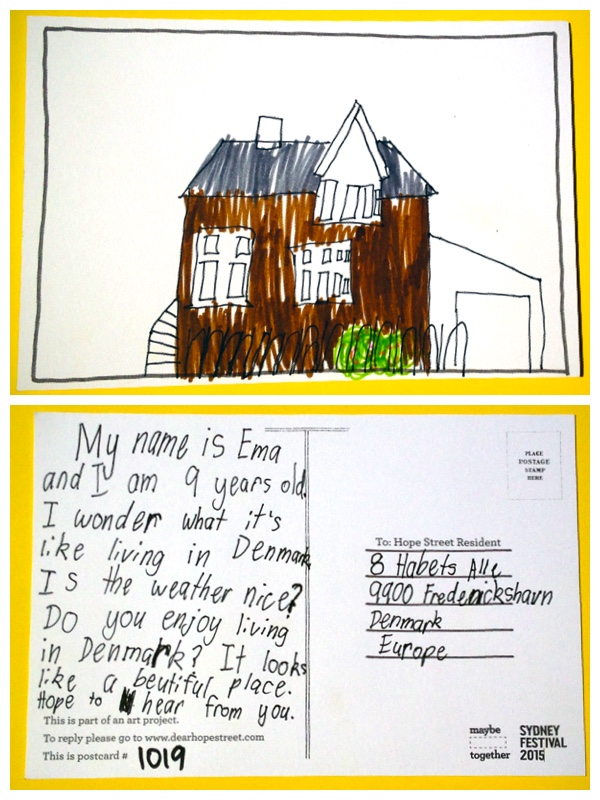 My name is Ema
and I am 9 years old.
I wonder what it's
like living in Denmark
Is the weather nice?
Do you enjoy living
in Denmark? It looks
like a beutiful place.
Hope to hear from you.
This is part of an art project.
To reply please go to www.dearhopestreet.com
This is postcard # 1019
PLACE
POSTAGE
STAMP
HERE
To: Hope Street Resident
8 Habets Alle
9900 Frederickshavn
Denmark
Europe
maybe
together
SYDNEY
FESTIVAL
2015